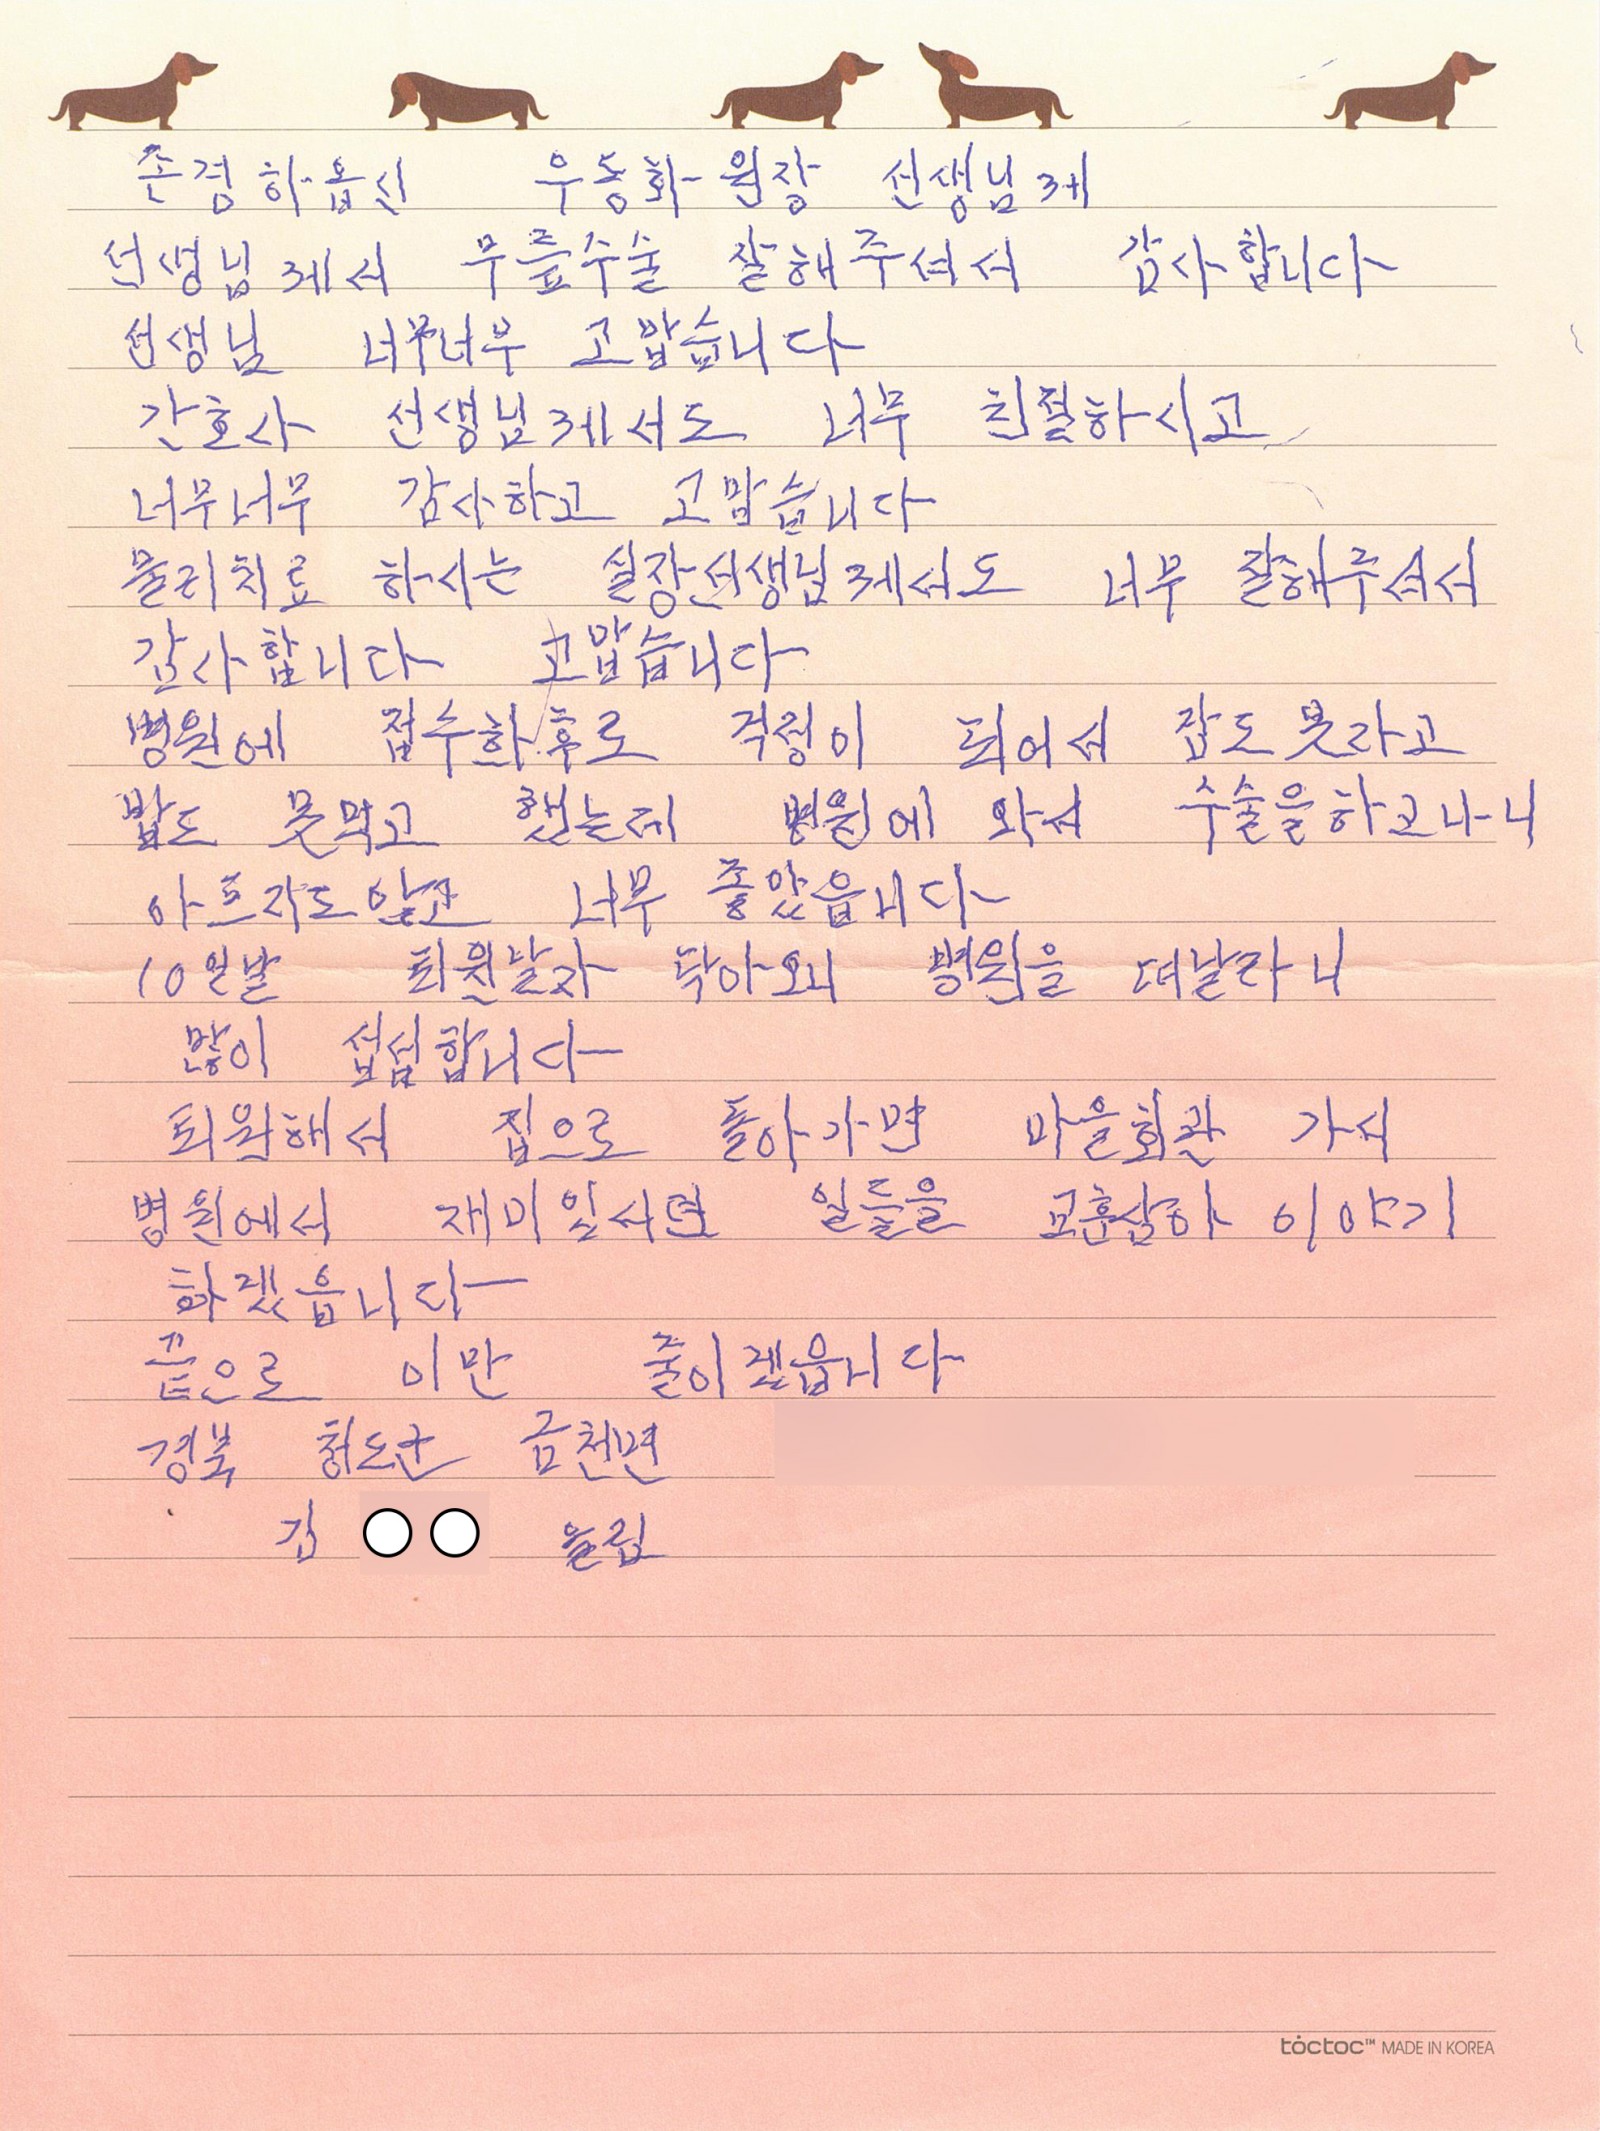 존경하옵신 우동화 원장 선생님께
선생님께서 무릎수술 잘해주셔서 감사합니다
선생님 너무너무 고맙습니다
간호사 선생님께서도 너무 친절하시고
너무너무 감사하고 고맙습니다
물리치료 하시는 실장선생님께서도 너무 잘해주셔서
감사합니다 고맙습니다
병원에 접수한후로 걱정이 되어서 잠도못라고
밥도 못먹고 했는데 병원에 와서 수술을하고나니
아프지도않고 너무 좋았읍니다
10일날 퇴원날자 닥아오니 병원을 떠날라니
많이 섭섭합니다
퇴원해서 집으로 돌아가면 마을회관 가서
병원에서 재미잎서면 일들을 교훈삼하 이야기
하겠읍니다
끝으로 이만 줄이겠읍니다
경북 청도군 금천면
김 올림
tòctoc™ MADE IN KOREA